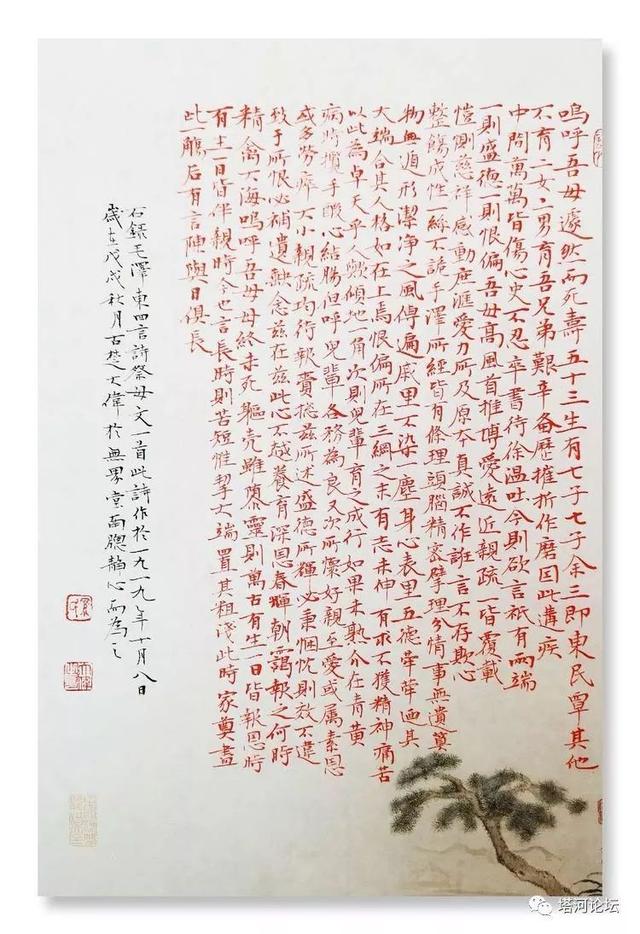 嗚呼吾母遽然而死壽五十三生有七子七子余三即東民覃其他
不育二女二男育吾兄弟艱辛備歷摧折作磨因此遘疾
中間萬萬皆傷心史不忍卒書待徐温吐今則欲言衹有兩端
一則盛德一則恨偏吾母高風首推博愛遠近親疏一皆覆載
愷惻慈祥感動庶滙愛力所及原本真誠不作誑言不存欺心
整飭成性一絲不詭手澤所經皆有條理頭腦精密擘理分情事無遺算
物無遁形潔净之風傳遍戚里不染一塵身心表里五德犖犖迺其
大端合其人格如在上焉恨偏所在三綱之末有志未伸有求不獲精神痛苦
以此為卓天乎人歟傾地一角次則兒輩育之成行如果未熟介在青黄
病時攬手酸心結腸但呼兒輩各務為良又次所懷好親至愛或屬素恩
或多勞瘁大小親疏均待報賚總兹所述盛德所輝必秉悃忱則效不違
致于所恨必補遺缺念兹在兹此心不越養育深恩春暉朝靄報之何時
精禽大海嗚呼吾母母終未死軀壳雖隳靈則萬古有生一日皆報恩時
有生一日皆伴親時今也言長時則苦短惟挈大端置其粗淺此時家奠盡
此一觴后有言陳與日俱長
右錄毛澤東四言詩祭母文一首此詩作於一九一九年十月八日
歲在戊戌秋月古楚大偉於無界堂南窗静心而為之
塔河论坛